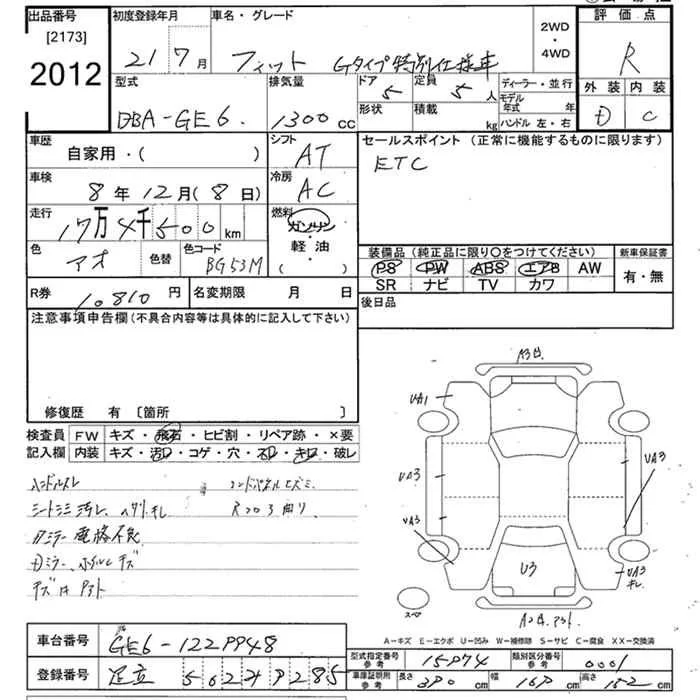 出品番号 [2173] 2012
初度登録年月 21 7月
車名・グレード フィット Gタイプ特別仕様車
2WD・4WD
評価点 R
外装 D 内装 C
型式 DBA-GE6
排気量 1300cc
ドア 5 定員 5人
形状 積載 kg
ディーラー・並行
モデル年式 年
ハンドル 左・右
車歴 自家用・( )
シフト AT
セールスポイント (正常に機能するものに限ります)
ETC
車検 8年12月(8日)
冷房 AC
走行 17万4千500km
燃料 ガソリン・軽油( )
色 アオ 色替 色コード BG53M
装備品 (純正品に限り○をつけてください)
PS PW ABS エアB AW
SR ナビ TV カワ
新車保証書 有・無
R券 10,810円 名変期限 月 日
後日品
注意事項申告欄 (不具合内容等は具体的に記入して下さい)
修復歴 有 〔箇所 〕
検査員記入欄
FW キズ・飛石・ヒビ割・リペア跡・×要
内装 キズ・汚れ・コゲ・穴・スレ・キレ・破レ
ハンドルスレ
シートシミ汚レ
ミラー電格不良
キズ
A3
UA1
UA3
UA3
UA3
U3
UA3
キレ
スペア
A-キズ E-エクボ U-凹み W-補修跡 S-サビ C-腐食 XX-交換済
車台番号 GE6-1229948
登録番号 足立 502 9285
型式指定番号 参考 15974
類別区分番号 参考 0001
車庫証明用 参考 長さ 390cm 幅 169cm 高さ 152